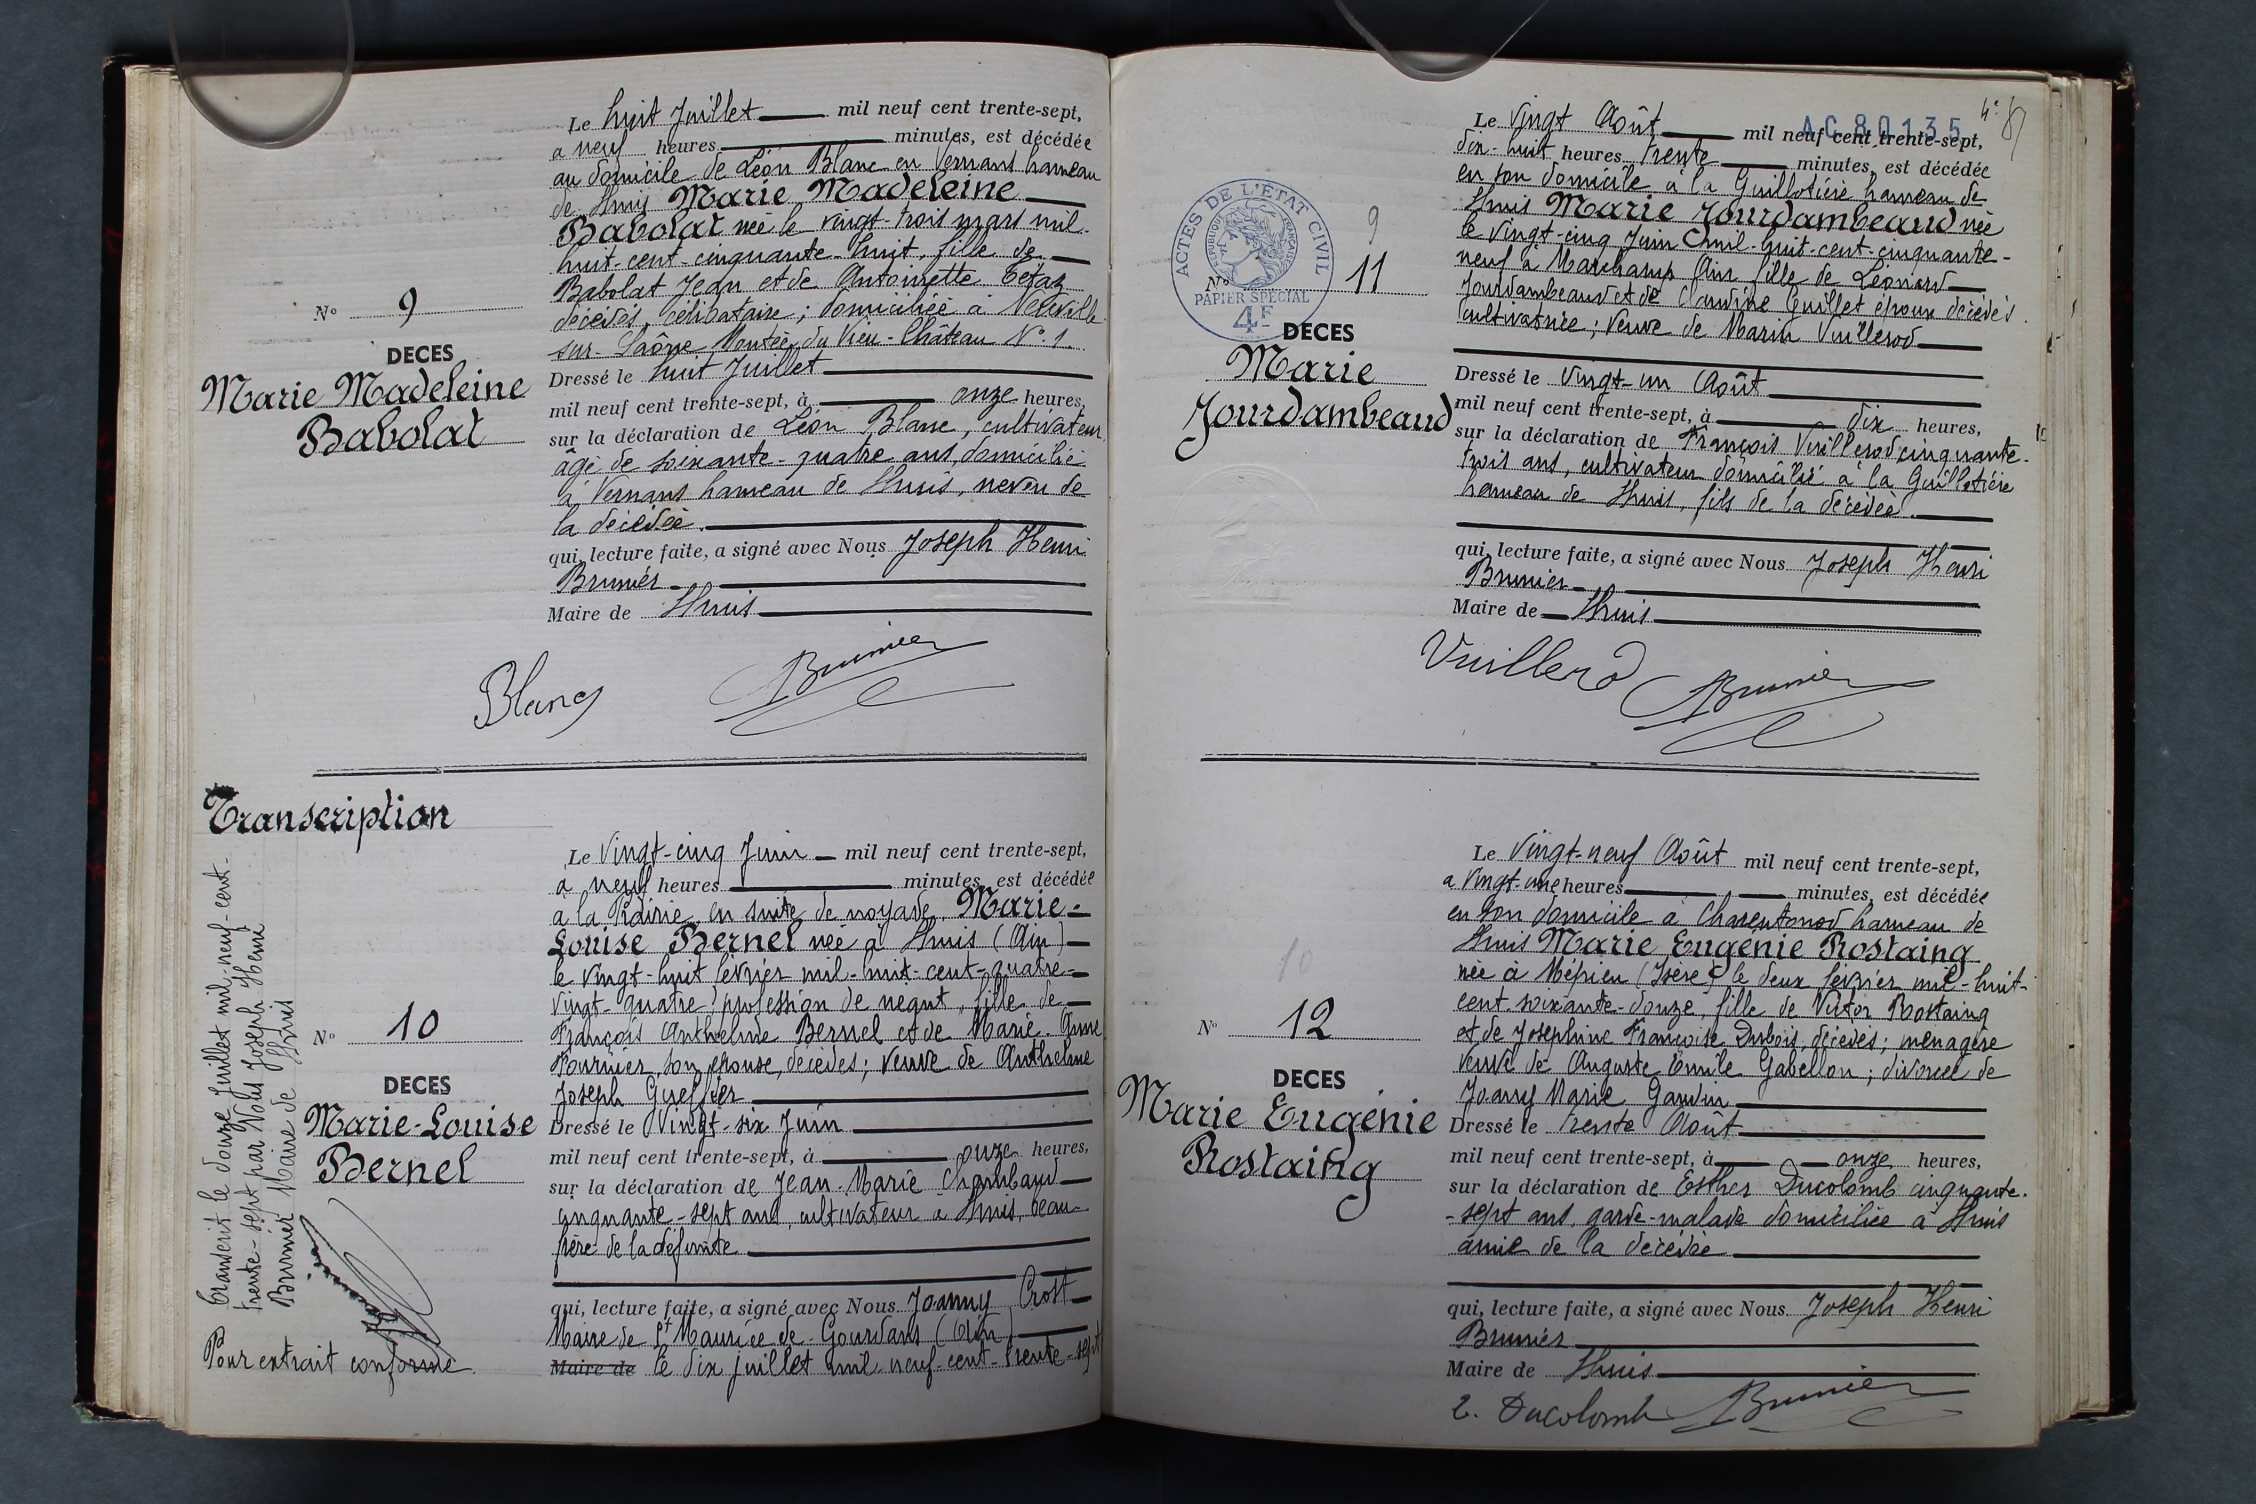 Le huit Juillet mil neuf cent trente-sept,
à neuf heures minutes, est décédée
au domicile de Léon Blanc en Vernans hameau
de Lhuis Marie Madeleine
Babolat née le vingt-trois mars mil
huit-cent-cinquante-huit, fille de
Babolat Jean et de Antoinette Tétaz
décédés, célibataire; domiciliée à Neuville
sur-Saône Montée du Vieu-Château N° 1.
N° 9
DECES
Marie Madeleine
Babolat
Dressé le huit Juillet
mil neuf cent trente-sept, à onze heures,
sur la déclaration de Léon Blanc, cultivateur
âgé de soixante-quatre ans, domicilié
à Vernans hameau de Lhuis, neveu de
la décédée.
qui, lecture faite, a signé avec Nous Joseph Henri
Brunier
Maire de Lhuis
Blanc Brunier
Transcription
Le Vingt-cinq Juin mil neuf cent trente-sept,
à neuf heures minutes, est décédée
à la Prairie, en suite de noyade, Marie-
Louise Bernel née à Lhuis (Ain)
le vingt-huit février mil-huit-cent-quatre-
vingt-quatre, profession de néant, fille de
François Anthelme Bernel et de Marie-Anne
Fournier, son épouse, décédés; veuve de Anthelme
Joseph Gueffier
N° 10
DECES
Marie-Louise
Bernel
Dressé le Vingt-six Juin
mil neuf cent trente-sept, à onze heures,
sur la déclaration de Jean-Marie Chambaud
cinquante-sept ans, cultivateur à Lhuis, beau-
frère de la défunte
qui, lecture faite, a signé avec Nous Joanny Crost
Maire de St Maurice de-Gourdans (Ain)
Maire de le dix juillet mil neuf-cent-trente-sept
Transcrit le douze Juillet mil-neuf-cent-
trente-sept par Nous Joseph Henri
Brunier Maire de Lhuis
Pour extrait conforme
4e
AC 80135
Le Vingt Août mil neuf cent trente-sept,
dix-huit heures trente minutes, est décédée
en son domicile à la Guillotière hameau de
Lhuis Marie Jourdambeaud née
le vingt-cinq Juin mil-huit-cent-cinquante-
neuf à Marchamp Ain fille de Léonard
Jourdambeaud et de Claudine Guillet époux décédés
cultivatrice; Veuve de Marin Vuillerod
ACTES DE L'ETAT CIVIL
REPUBLIQUE FRANÇAISE
PAPIER SPECIAL
4F
9
N° 11
DECES
Marie
Jourdambeaud
Dressé le Vingt-un Août
mil neuf cent trente-sept, à dix heures,
sur la déclaration de François Vuillerod cinquante-
trois ans, cultivateur domicilié à la Guillotière
hameau de Lhuis, fils de la décédée.
qui, lecture faite, a signé avec Nous Joseph Henri
Brunier
Maire de Lhuis
Vuillerod Brunier
Le Vingt-neuf Août mil neuf cent trente-sept,
a Vingt-une heures minutes, est décédée
en son domicile à Charentonod hameau de
Lhuis Marie Eugénie Rostaing
née à Mépieu (Isère) le deux février mil-huit-
cent-soixante-douze, fille de Victor Rostaing
et de Joséphine Françoise Dubois, décédés; ménagère
veuve de Auguste Emile Gabellon; divorcée de
Joany Marie Gandin
10
N° 12
DECES
Marie Eugénie
Rostaing
Dressé le trente Août
mil neuf cent trente-sept, à onze heures,
sur la déclaration de Esther Ducolomb cinquante-
-sept ans, garde-malade domiciliée à Lhuis
amie de la décédée
qui, lecture faite, a signé avec Nous Joseph Henri
Brunier
Maire de Lhuis
E. Ducolomb Brunier